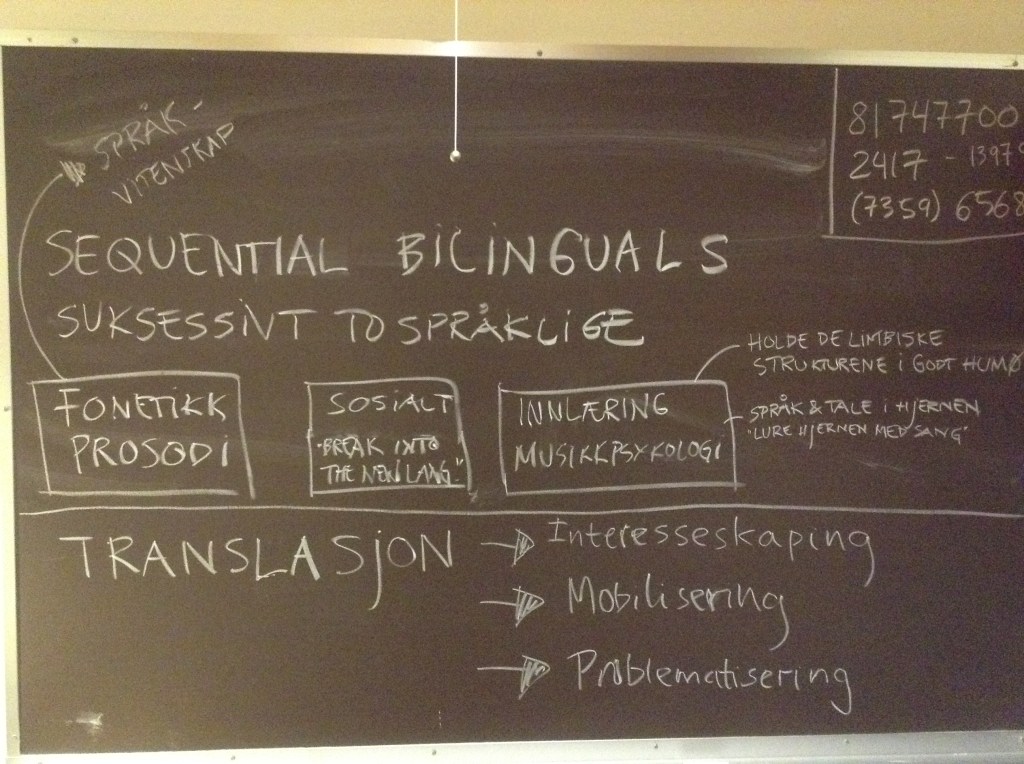 SPRÅK-
VITENSKAP
81747700
2417 - 1397
(7359) 6568
SEQUENTIAL BILINGUALS
SUKSESSIVT TOSPRÅKLIGE
HOLDE DE LIMBISKE
STRUKTURENE i GODT HUMØ
FONETIKK
PROSODI
SOSIALT
"BREAK INTO
THE NEW LANG."
INNLÆRING
MUSIKKPSYKOLOGI
SPRÅK & TALE i HJERNEN
"LURE HJERNEN MED SANG"
TRANSLASjON
Interesseskaping
Mobilisering
Problematisering